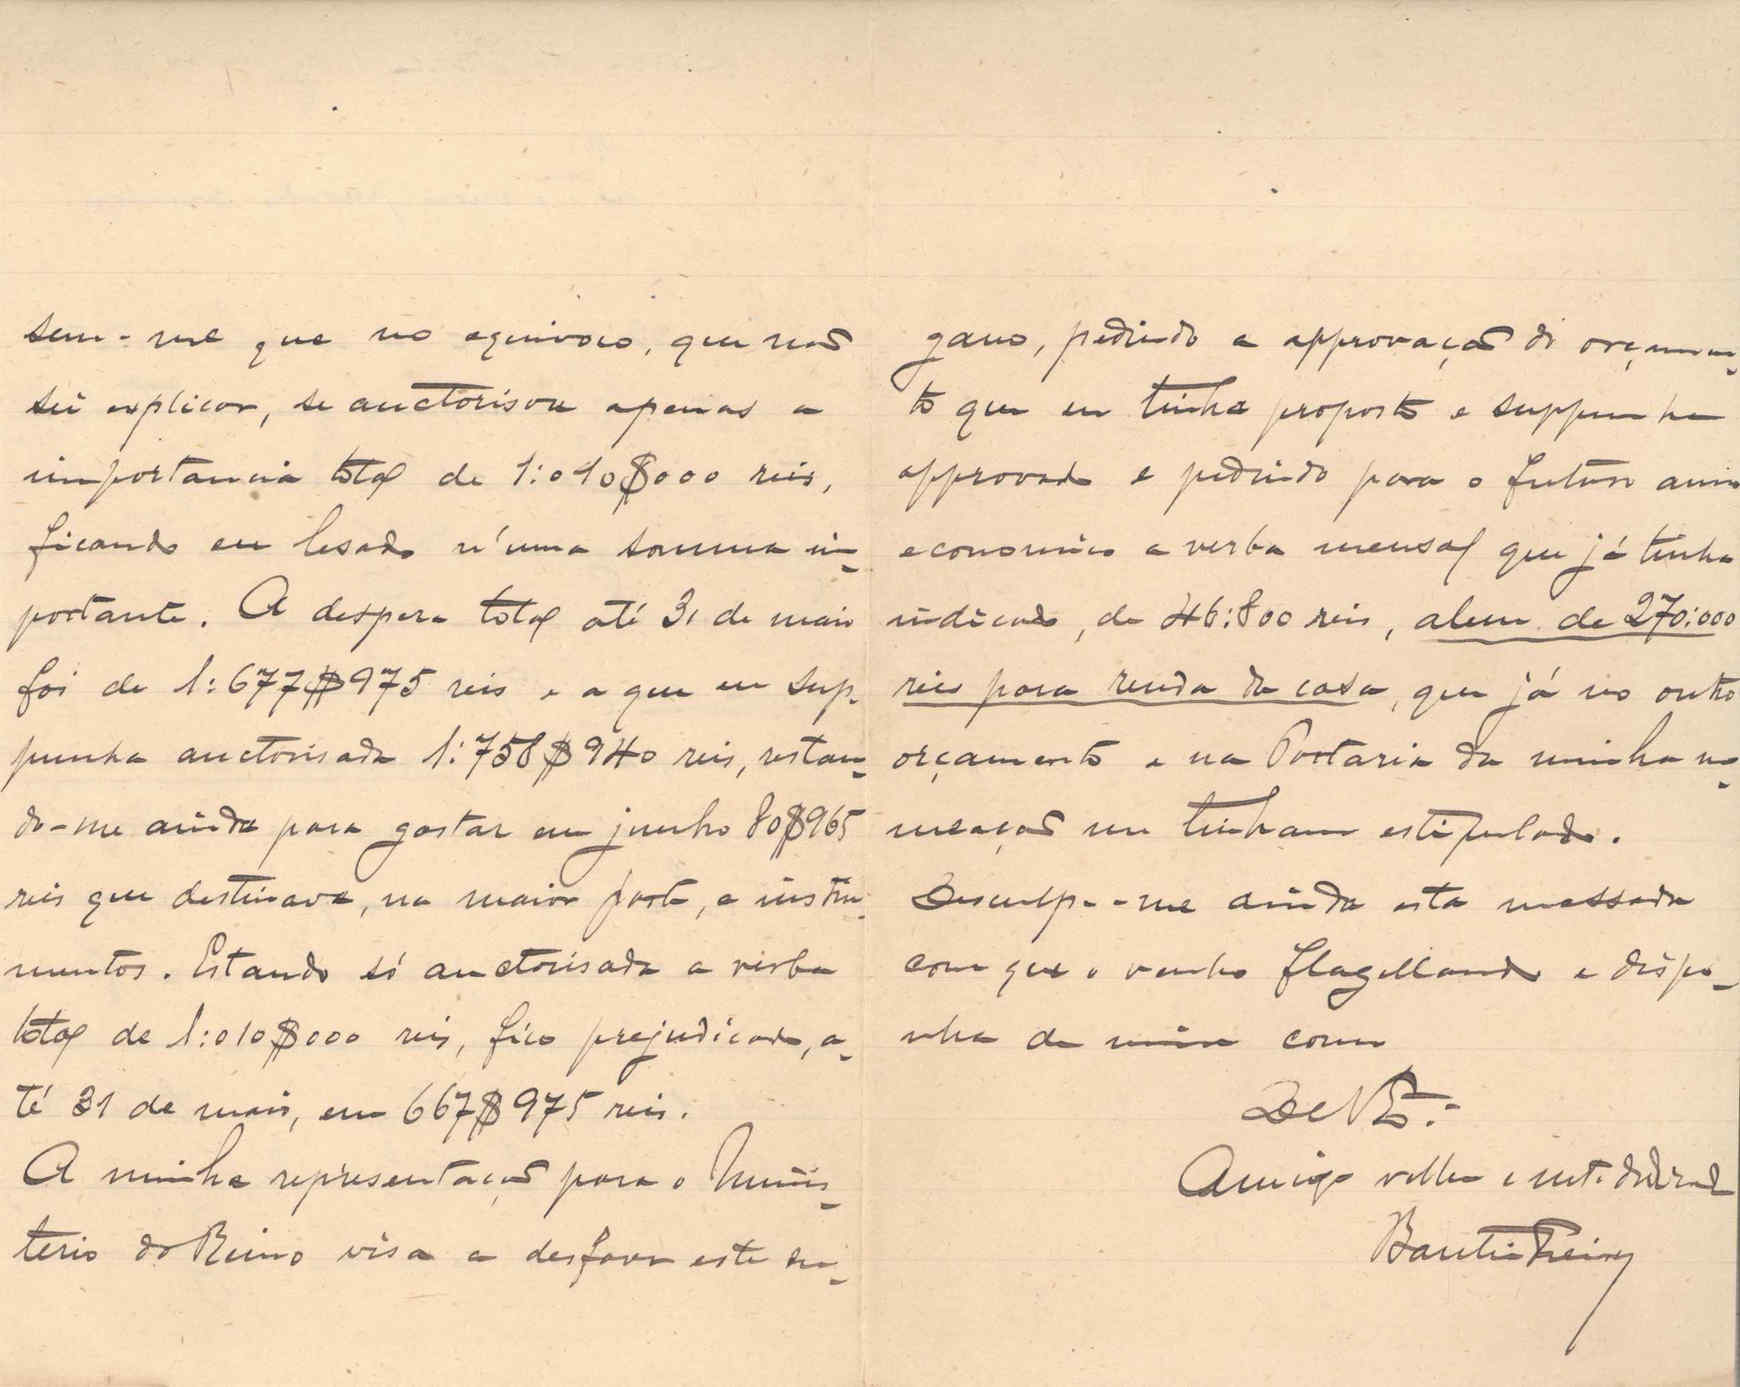 sem-me que no equivoco, que não
sei explicar, se auctorisou apenas a
importancia total de 1:010$000 reis,
ficando eu lesado n'uma somma im-
portante. A despeza total até 31 de maio
foi de 1:677$975 reis e a que eu sup-
punha auctorisada 1:758$940 reis, restan-
do-me ainda para gastar em junho 80$965
reis que destinava, na maior parte, a instru-
mentos. Estando só auctorisada a verba
total de 1:010$000 reis, fico prejudicado, a-
té 31 de maio, em 667$975 reis.
A minha representação para o Minis-
terio do Reino visa a desfazer este en-
gano, pedindo a approvação do orçamen-
to que eu tinha proposto e suppunha
approvado e pedindo para o futuro anno
economico a verba mensal que já tinha
indicado, de 46:800 reis, alem de 270:000
reis para renda da casa, que já no outro
orçamento e na Portaria da minha no-
meação me tinham estipulado.
Desculpe-me ainda esta massada
com que o venho flagellando e dispo-
nha de mim como
De V. Ex.
Amigo velho e mt.